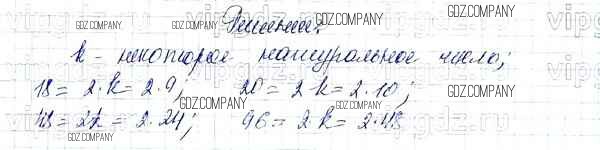 Решение.
k - некоторое натуральное число;
18 = 2·k = 2·9; 20 = 2·k = 2·10;
48 = 2k = 2·24; 96 = 2·k = 2·48
GDZ.COMPANY
GDZ.COMPANY
GDZ.COMPANY
GDZ.COMPANY
GDZ.COMPANY
GDZ.COMPANY
GDZ.COMPANY